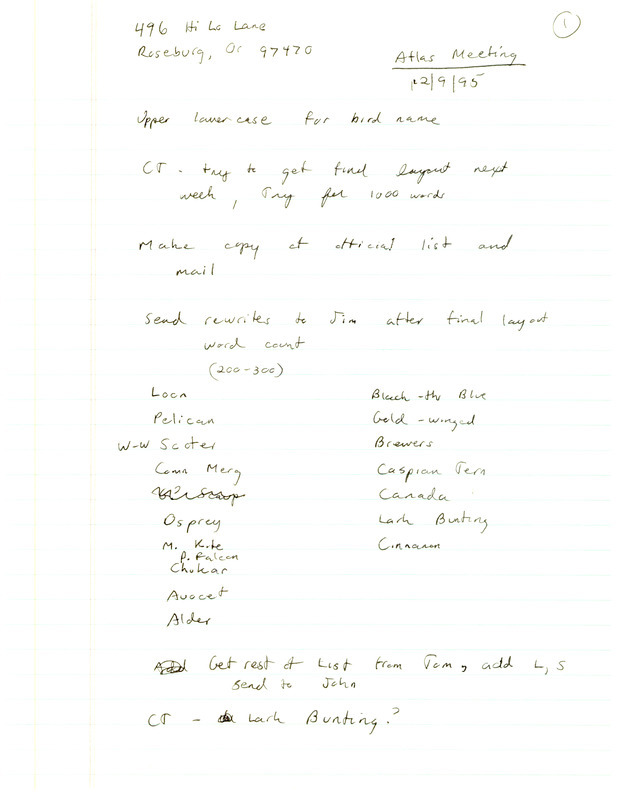 1
496 Hi Lo Lane
Roseburg, Or 97470
Atlas Meeting
12/9/95
Upper lower case for bird name
CT - try to get final layout next
week, Try for 1000 words
Make copy of official list and
mail
Send rewrites to Jim after final layout
word count
(200-300)
Loon
Pelican
W-W Scoter
Comm Merg
Osprey
M. Kite
P. Falcon
Chukar
Avocet
Alder
Black-thr Blue
Gold-winged
Brewers
Caspian Tern
Canada
Lark Bunting
Cinnamon
Get rest of List from Tom, add L, S
send to John
CT - Lark Bunting?